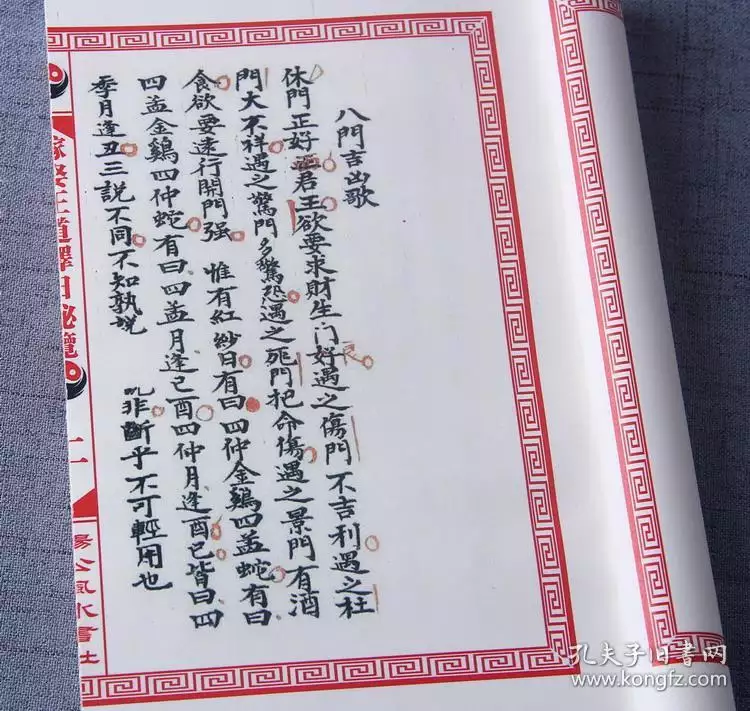 八門吉凶歌
休門正好
君王欲要求財生门好遇之傷門不吉利遇之杜
門大不祥遇之驚門多驚恐遇之死門把命傷遇之景門有酒
食欲要遠行開門强 惟有紅紗日有曰四仲金鷄四孟蛇有曰
四孟金鷄四仲蛇有曰四孟月逢巳酉四仲月逢酉巳皆曰四
季月逢丑三説不同不知孰説
非斷乎不可輕用也
嫁娶王道擇日秘覽
二
楊公風水書社
孔夫子旧书网
www.kongfz.com